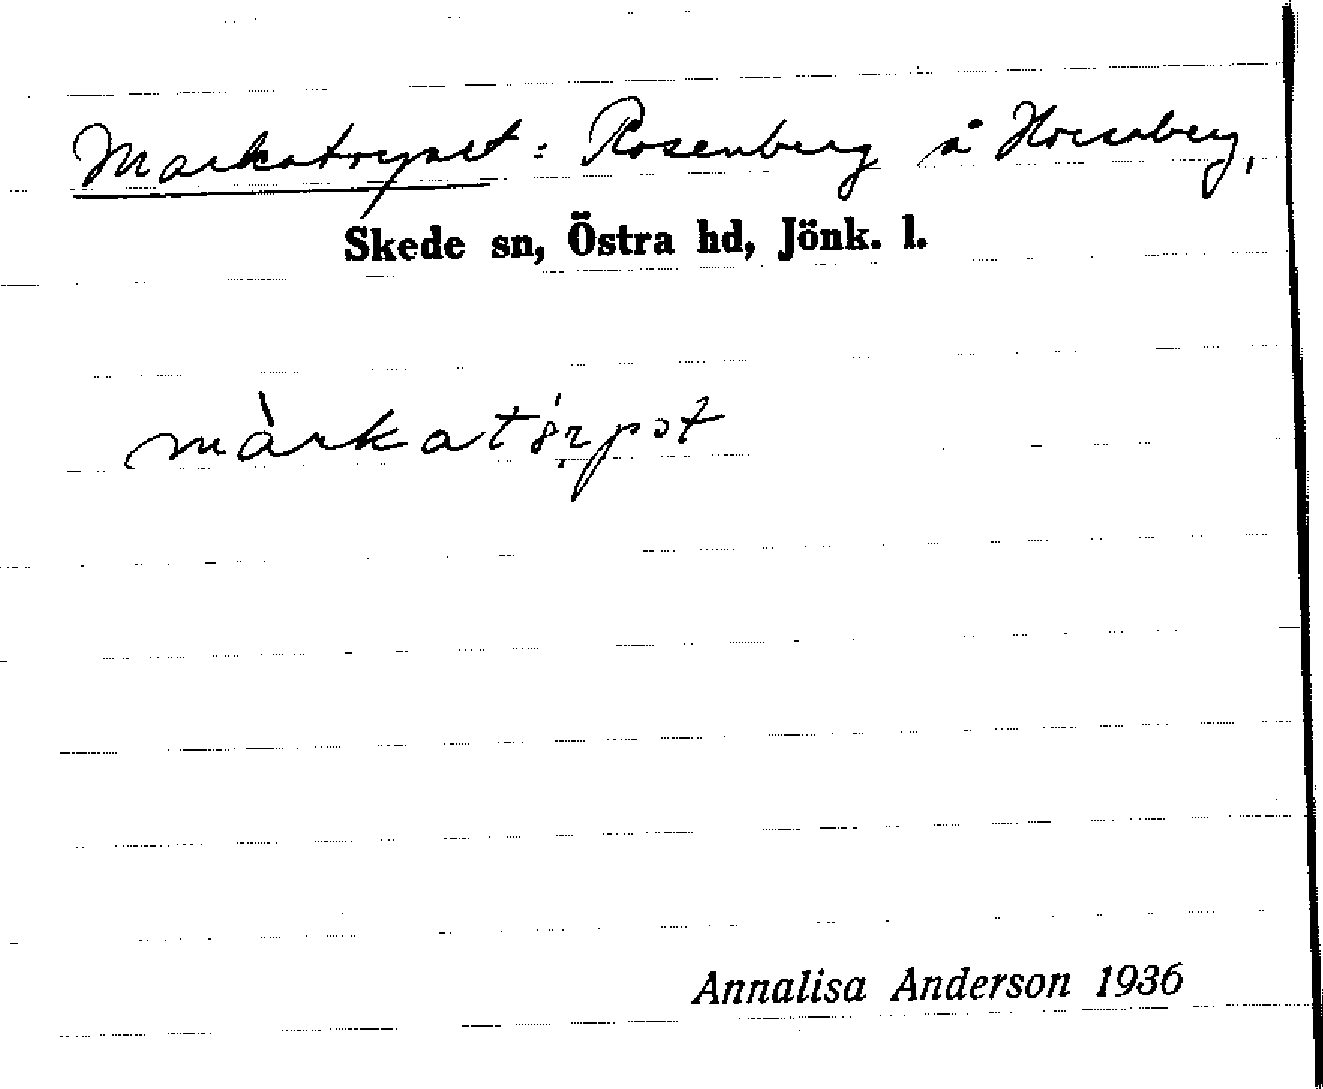 Markatorpet : Rosenberg å
Skede sn, Östra hd, Jönk. l.
Annalisa Anderson 1936